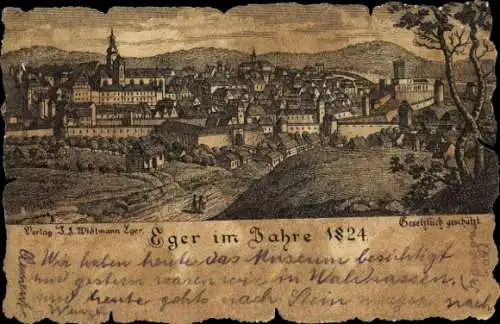 Verlag J. J. Widtmann Eger.
Gesetzlich geschützt
Eger im Jahre 1824
Wir haben heute das Museum besichtigt
und gestern waren wir in Waldsassen.
und heute gehts nach Stein nach